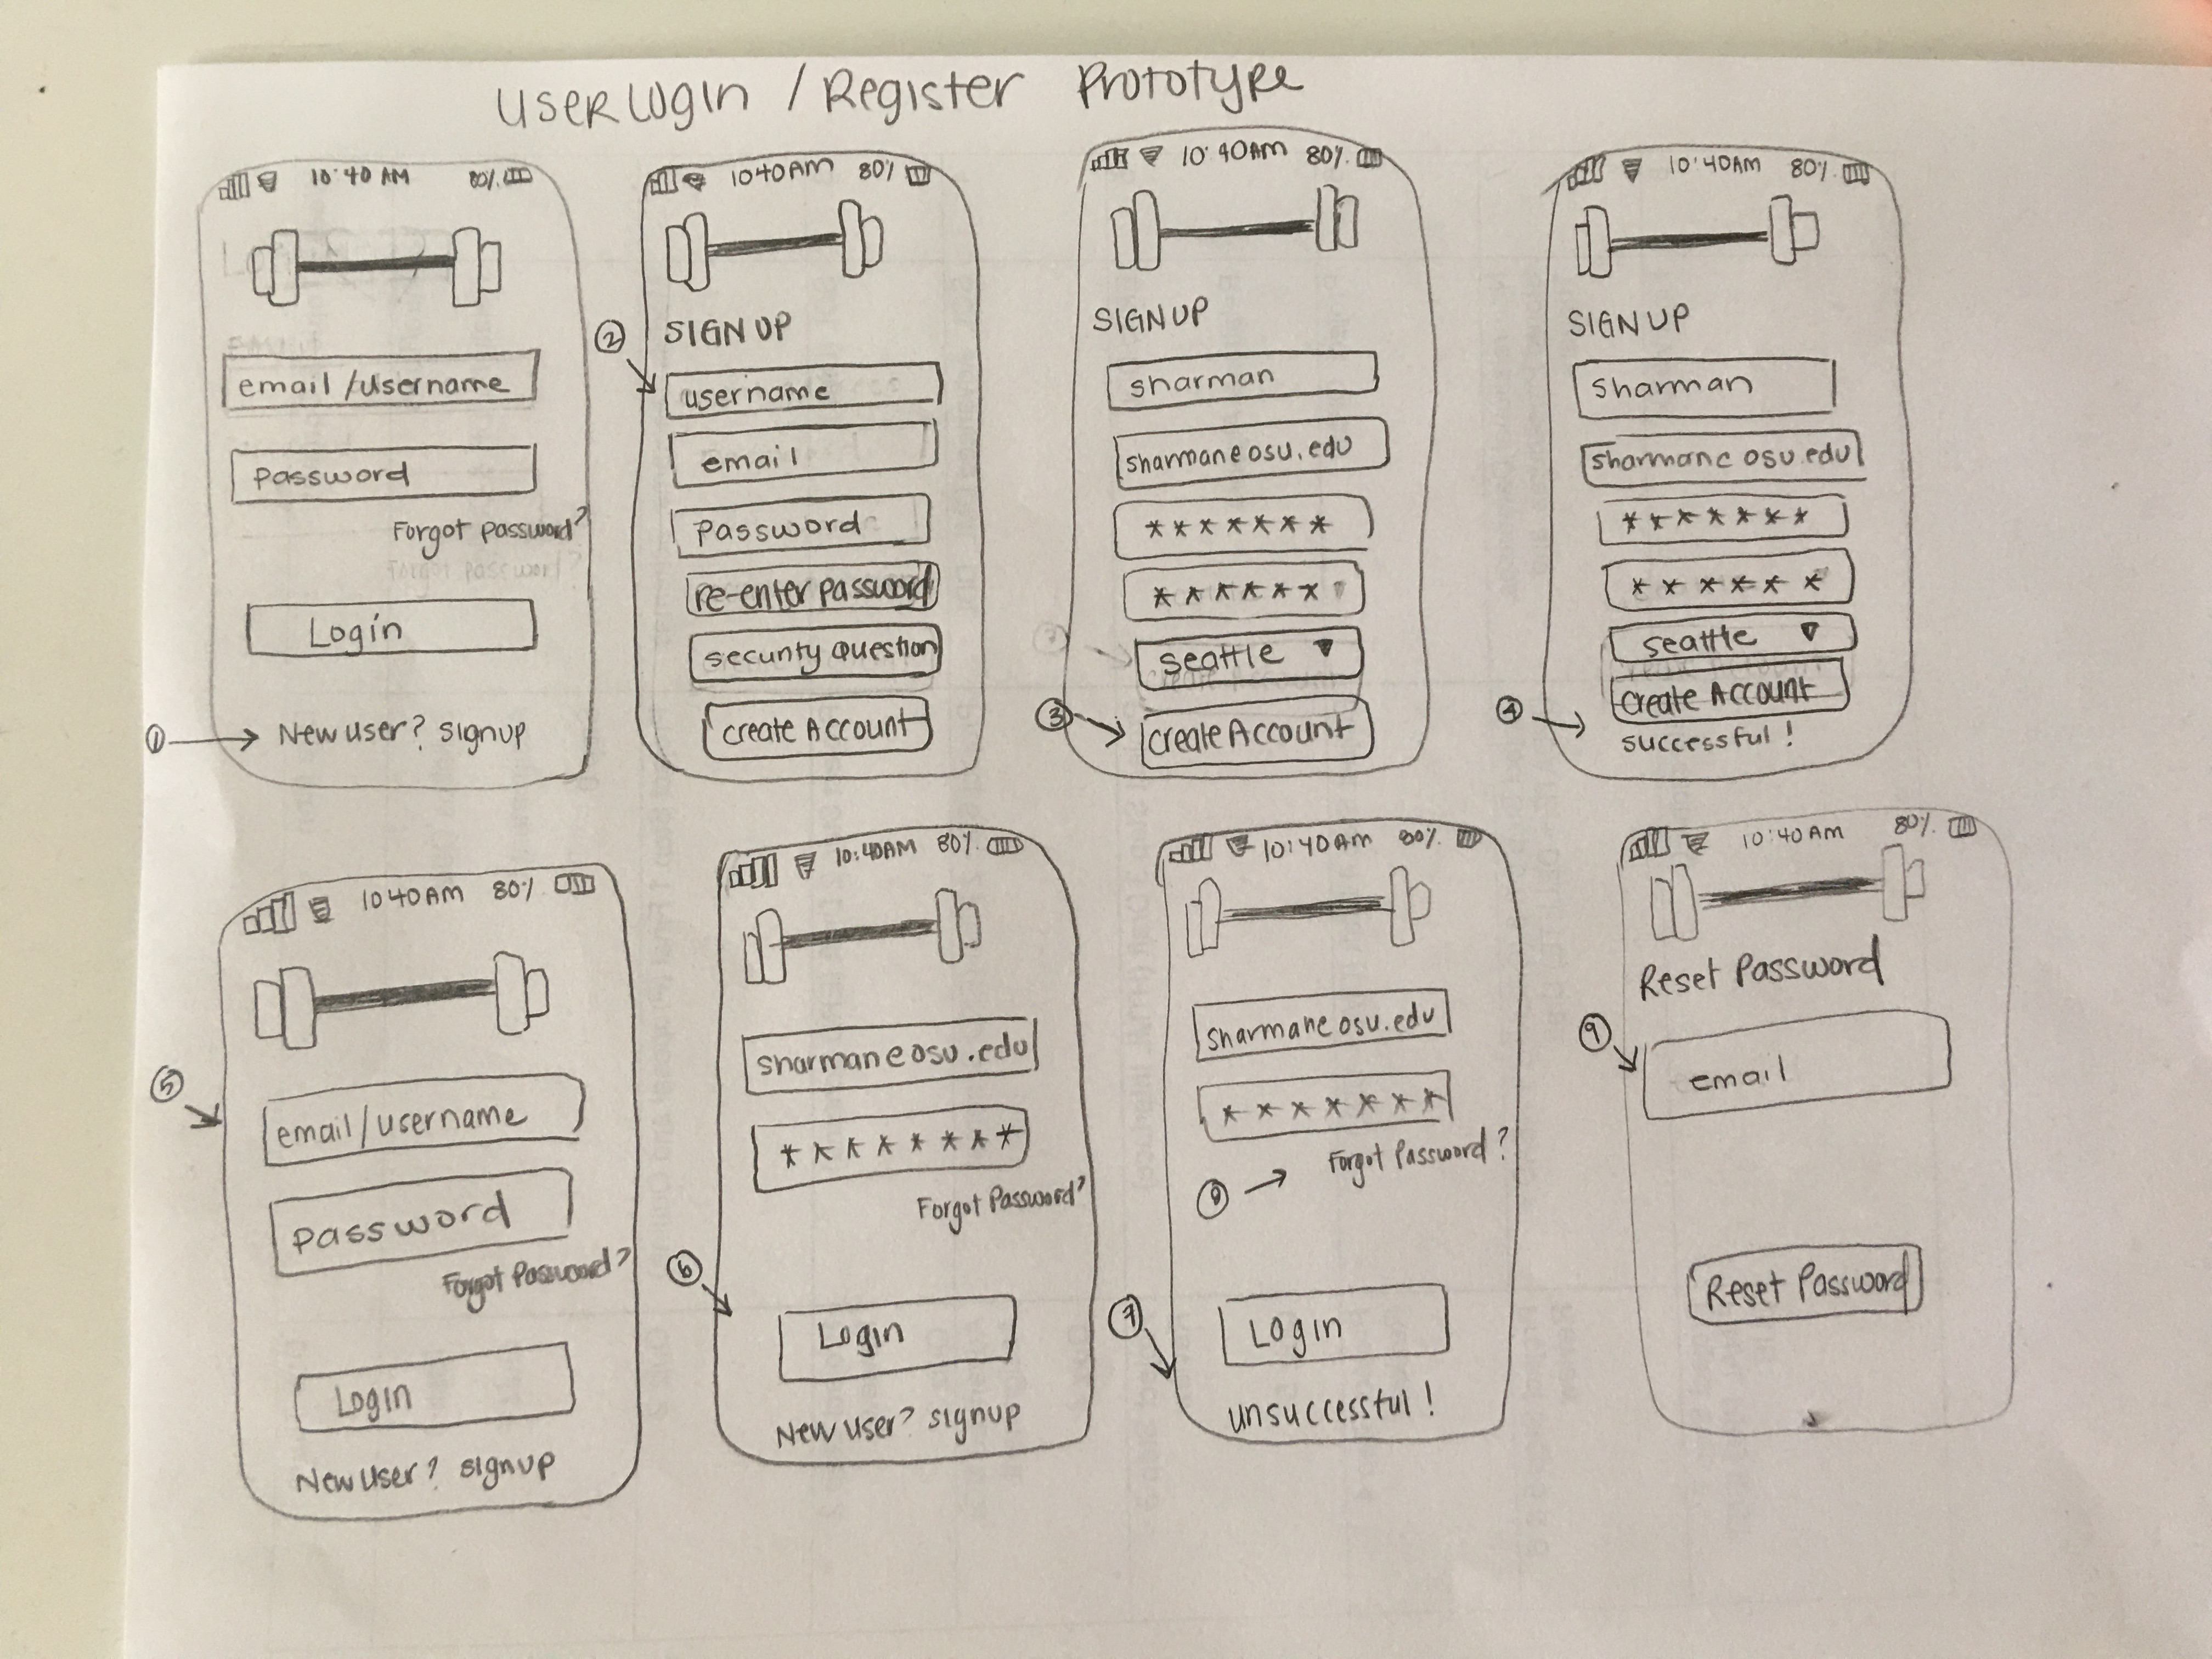 User Login / Register Prototype
10:40 AM 80%
email/username
Password
Forgot password?
Login
① New user? signup
10:40AM 80%
SIGN UP
② username
email
Password
re-enter password
security question
create Account
10:40AM 80%
SIGN UP
sharman
sharman@osu.edu
*******
******
seattle
③ create Account
10:40AM 80%
SIGN UP
shaman
sharman@osu.edu
*******
******
seattle
create Account
④ successful!
10 40 AM 80%
⑤ email/username
password
Forgot Password?
Login
New user? signup
10:40AM 80%
sharman@osu.edu
********
Forgot Password?
⑥ Login
New user? signup
10:40AM 80%
sharman@osu.edu
*******
Forgot Password?
Login
⑦ unsuccessful!
10:40AM 80%
Reset Password
⑨ email
Reset Password